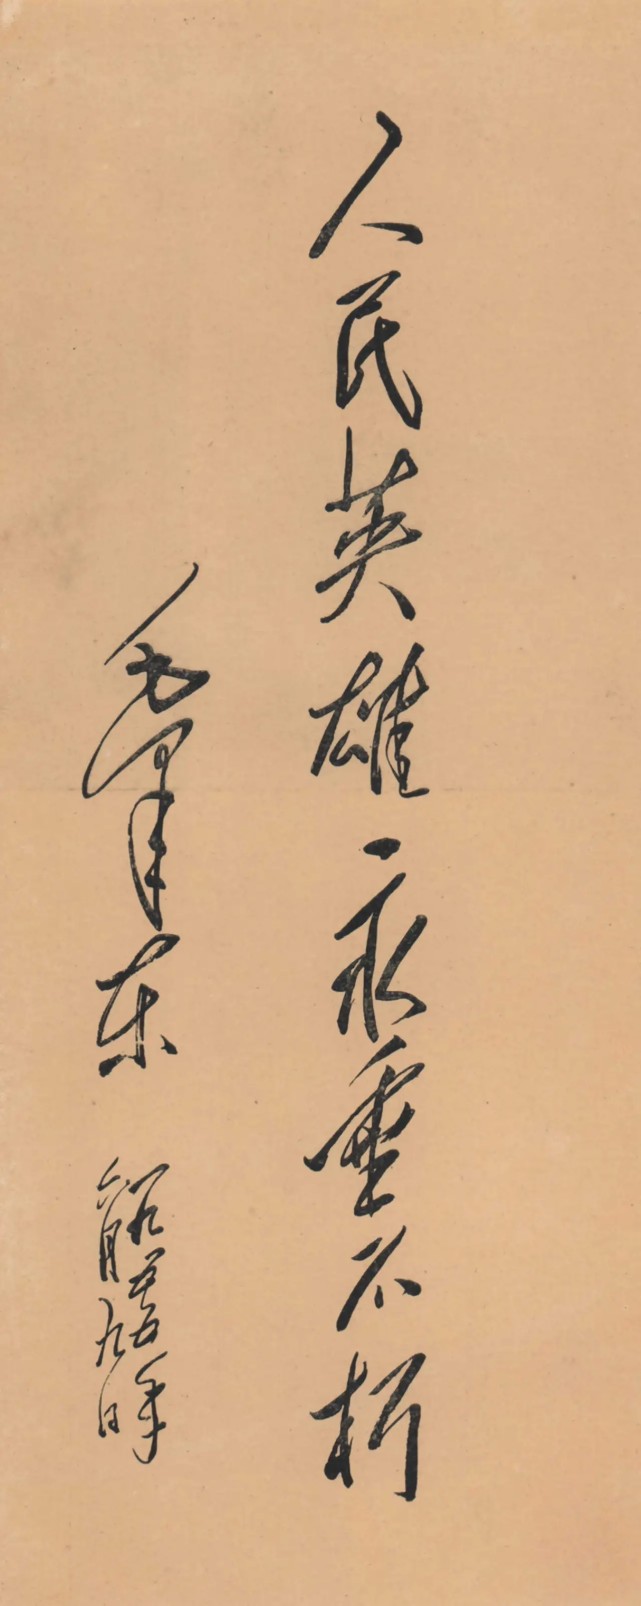 人民英雄永垂不朽
毛泽东
一九五五年
六月九日